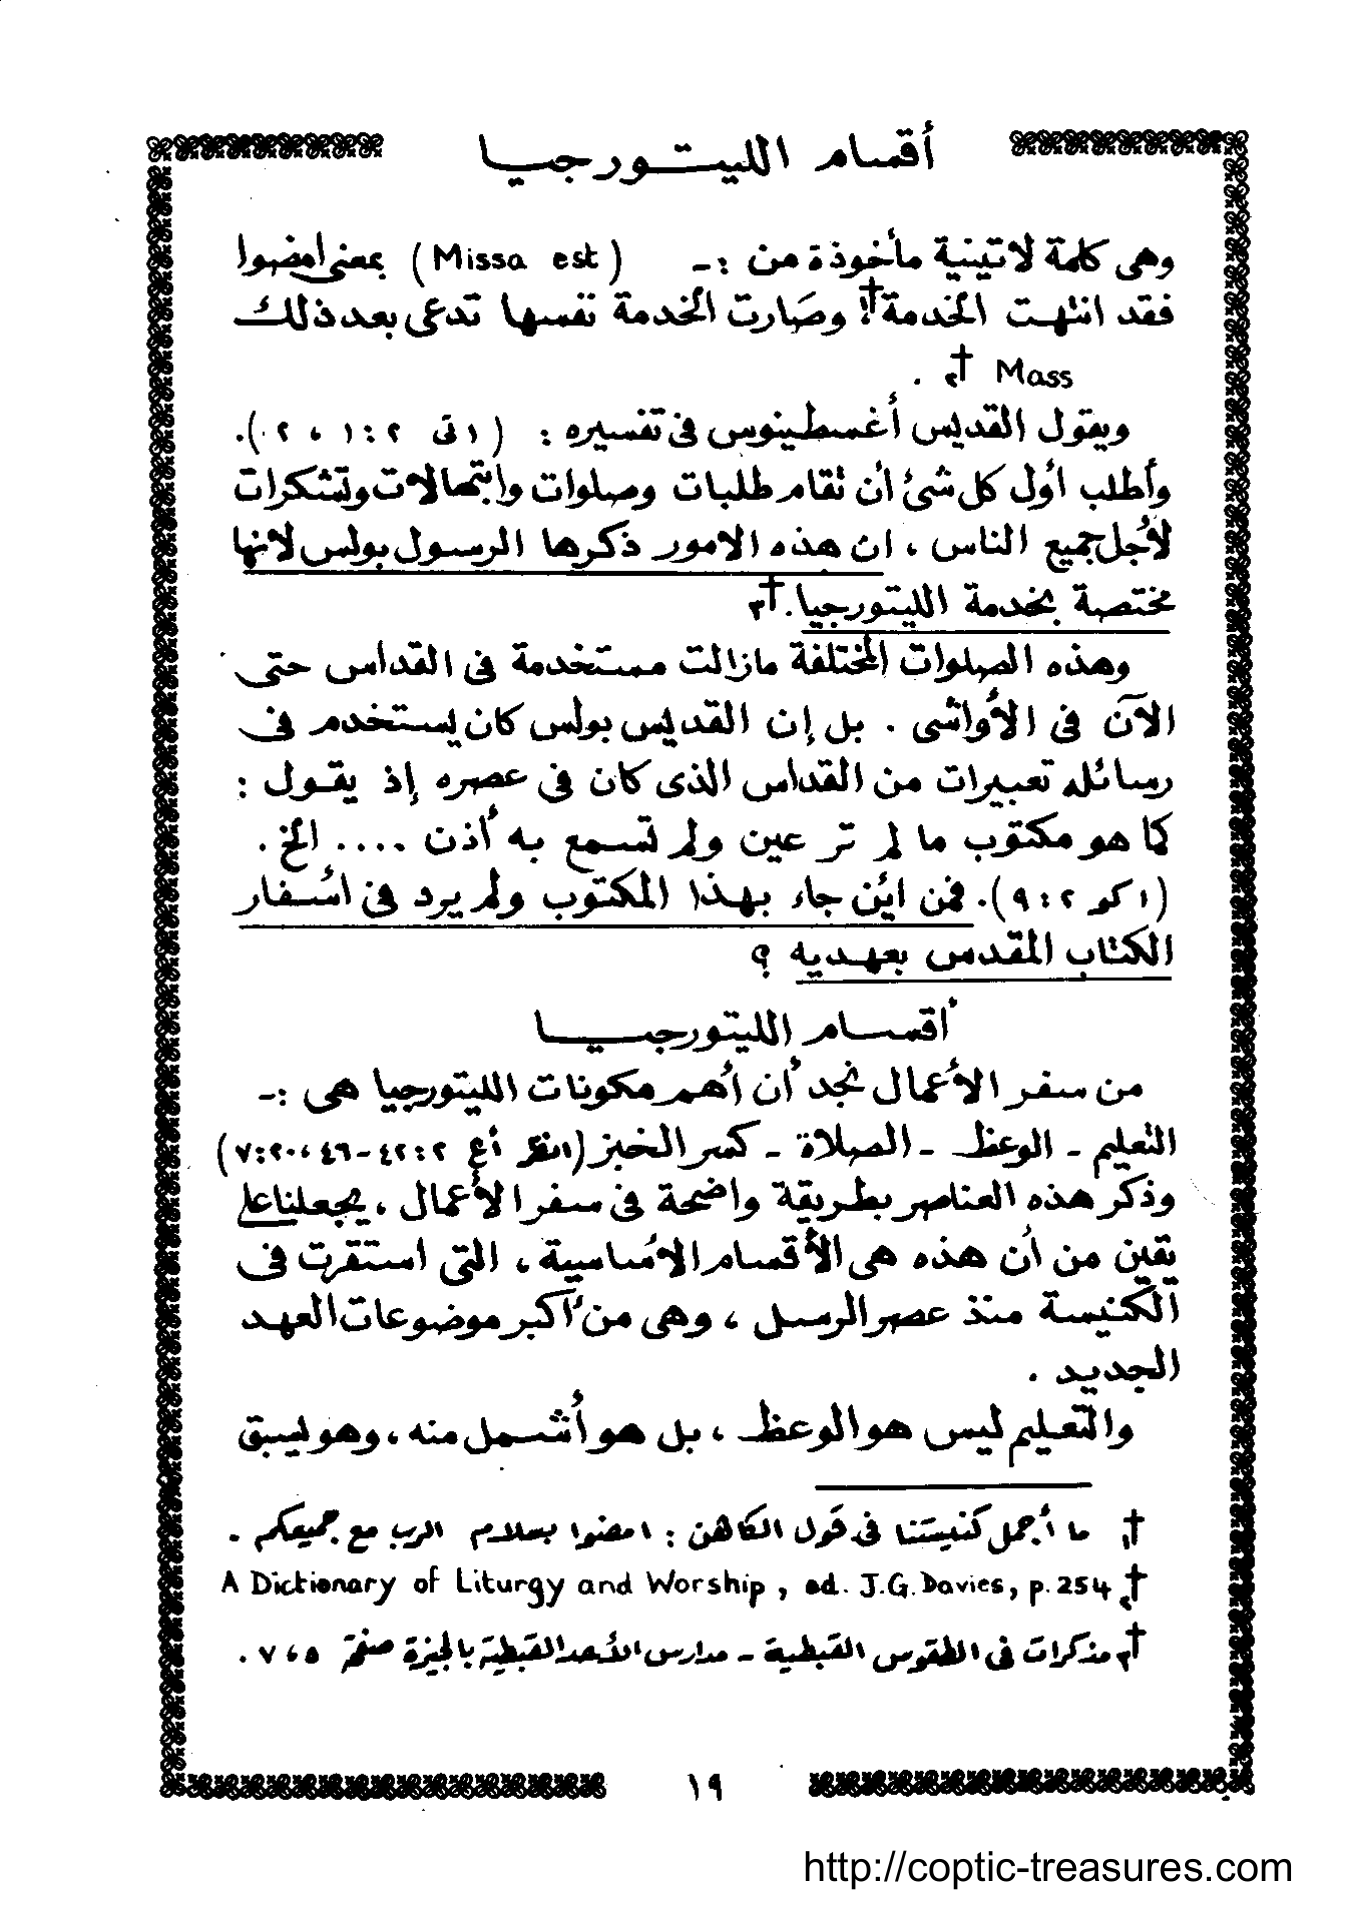 أقسام الليتورجيا
وهى كلمة لاتينية مأخوذة من :- (Missa est) بمعنى امضوا
فقد انتهت الخدمة†١ وصَارت الخدمة نفسها تدعى بعد ذلك
Mass †٢ .
ويقول القديس أغسطينوس فى تفسيره : (١تى ٢ : ١ ، ٢).
وأطلب أول كل شئ أن تقام طلبات وصلوات وابتهالات وتشكرات
لأجل جميع الناس ، ان هذه الامور ذكرها الرسول بولس لانها
مختصة بخدمة الليتورجيا.†٣
وهذه الصلوات المختلفة مازالت مستخدمة فى القداس حتى
الآن فى الأواشى . بل إن القديس بولس كان يستخدم فى
رسائله تعبيرات من القداس الذى كان فى عصره إذ يقول :
كما هو مكتوب ما لم تر عين ولم تسمع به أذن .... الخ .
(١كو ٢ : ٩). فمن اين جاء بهذا المكتوب ولم يرد فى أسفار
الكتاب المقدس بعهديه ؟
أقسام الليتورجيا
من سفر الأعمال نجد أن أهم مكونات الليتورجيا هى :-
التعليم - الوعظ - الصلاة - كسر الخبز (انظر أع ٢ : ٤٢-٤٦ ، ٢٠ : ٧)
وذكر هذه العناصر بطريقة واضحة فى سفر الأعمال ، يجعلنا على
يقين من أن هذه هى الأقسام الأساسية ، التى استقرت فى
الكنيسة منذ عصر الرسل ، وهى من أكبر موضوعات العهد
الجديد .
والتعليم ليس هو الوعظ ، بل هو أشمل منه ، وهو يسبق
†١ ما أجمل كنيستنا فى قول الكاهن : امضوا بسلام الرب مع جميعكم .
†٢ A Dictionary of Liturgy and Worship , ed. J.G. Davies, p. 254
†٣ مذكرات فى الطقوس القبطية - مدارس الأحد القبطية بالجيزة صفحة ٥ ، ٧ .
١٩
http://coptic-treasures.com